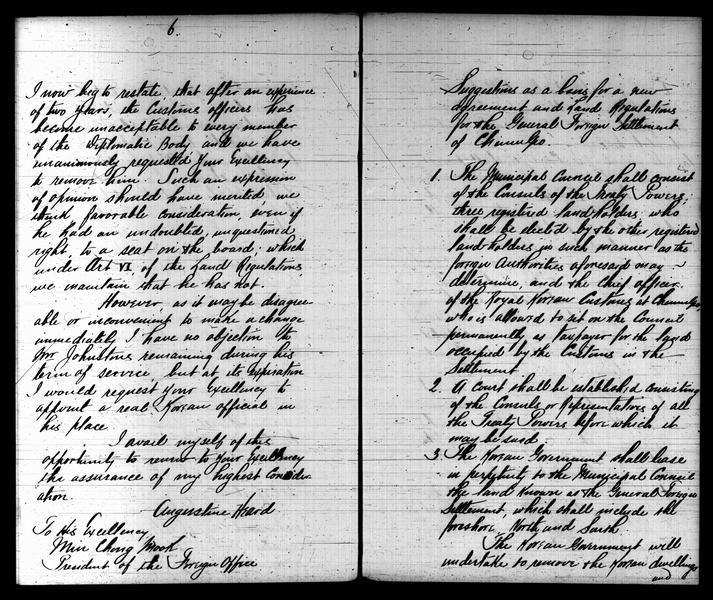 6.
I now beg to restate that after an experience
of two years, the Customs officers has
become unacceptable to every member
of the Diplomatic Body and we have
unanimously requested Your Excellency
to remove him. Such an expression
of opinion should have merited we
think favorable consideration, even if
he had an undoubted, unquestioned
right, to a seat on the board; which
under Art VI, of the Land Regulations
we maintain that he has not.
However as it may be disagree-
able or inconvenient to make a change
immediately I have no objection to
Mr Johnstons remaining during his
term of service but at its Expiration
I would request Your Excellency to
appoint a real Korean official in
his place
I avail myself of this
opportunity to renew to Your Excellency
the assurance of my highest Consider-
ation.
Augustine Heard
To His Excellency
Min Chong Mook
President of the Foreign Office
Suggestions as a basis for a new
agreement and Land Regulations
for the General Foreign Settlement
of Chemulpo.
1. The Municipal Council shall consist
of the Consuls of the Treaty Powers;
three registered land holders, who
shall be elected by the other registered
land holders in such manner as the
foreign Authorities aforesaid may
determine, and the Chief officer
of the Royal Korean Customs at Chemulpo,
who is allowed to sit on the Council
permanently as taxpayer for the land
occupied by the Customs in the
Settlement
2. A court shall be established consisting
of the Consuls or Representatives of all
the Treaty Powers before which it
may be sued.
3. The Korean Government shall lease
in perpetuity to the Municipal Council
the land known as the General Foreign
Settlement, which shall include the
foreshore North and South.
The Korean Government will
undertake to remove the Korean dwellings
and